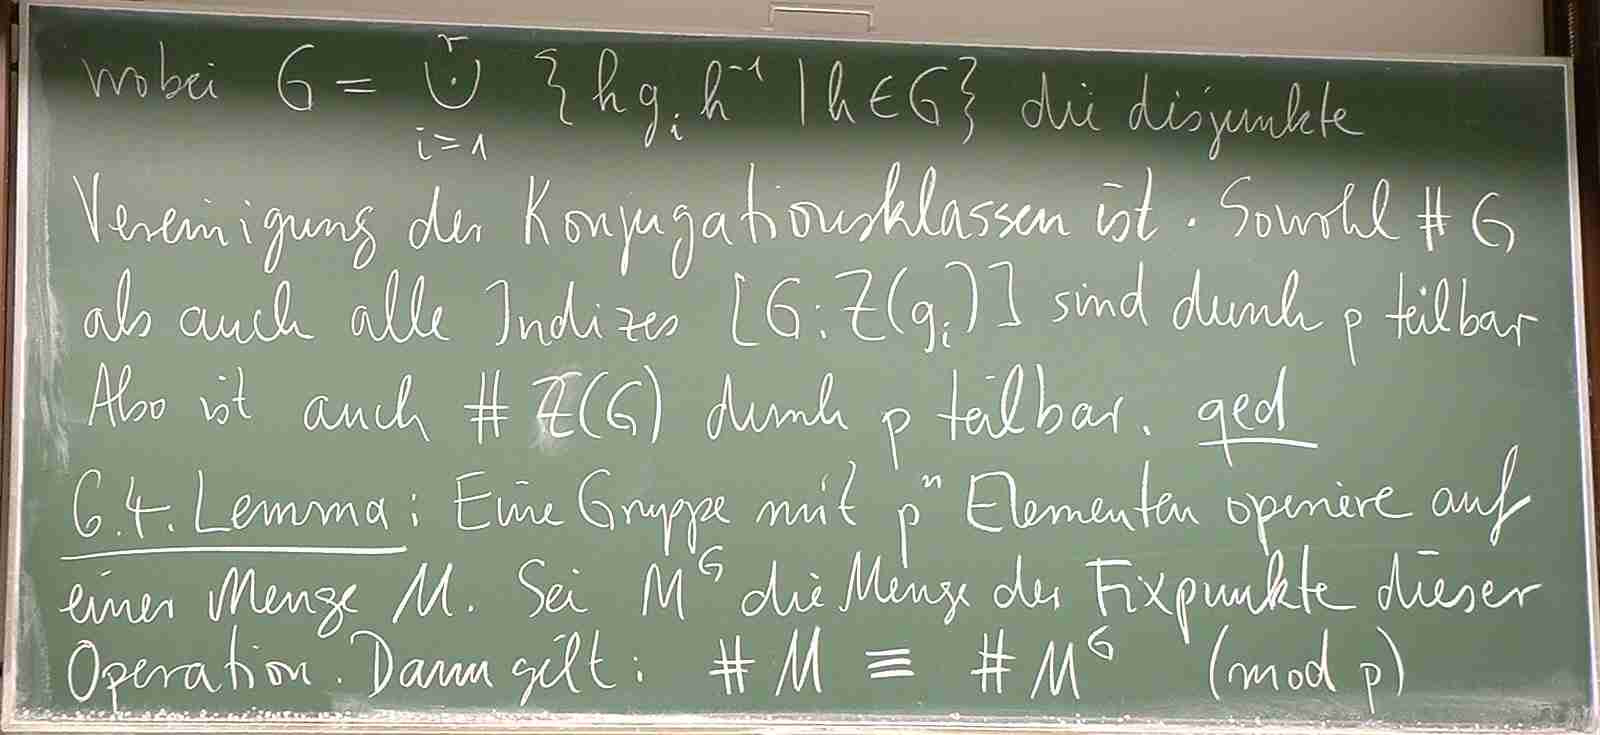 wobei G = ⨃_{i=1}^{r} {h g_i h⁻¹ | h ∈ G} die disjunkte
Vereinigung der Konjugationsklassen ist. Sowohl # G
als auch alle Indizes [G : Z(g_i)] sind durch p teilbar
Also ist auch # Z(G) durch p teilbar. qed
6.4. Lemma : Eine Gruppe mit pⁿ Elementen operiere auf
einer Menge M. Sei M^G die Menge der Fixpunkte dieser
Operation. Dann gilt : # M ≡ # M^G (mod p)